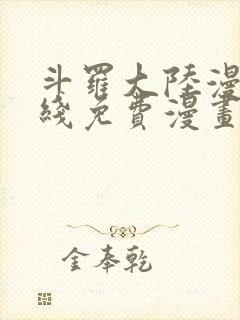 斗羅大陸漫
綫免費漫畫
金奉乾